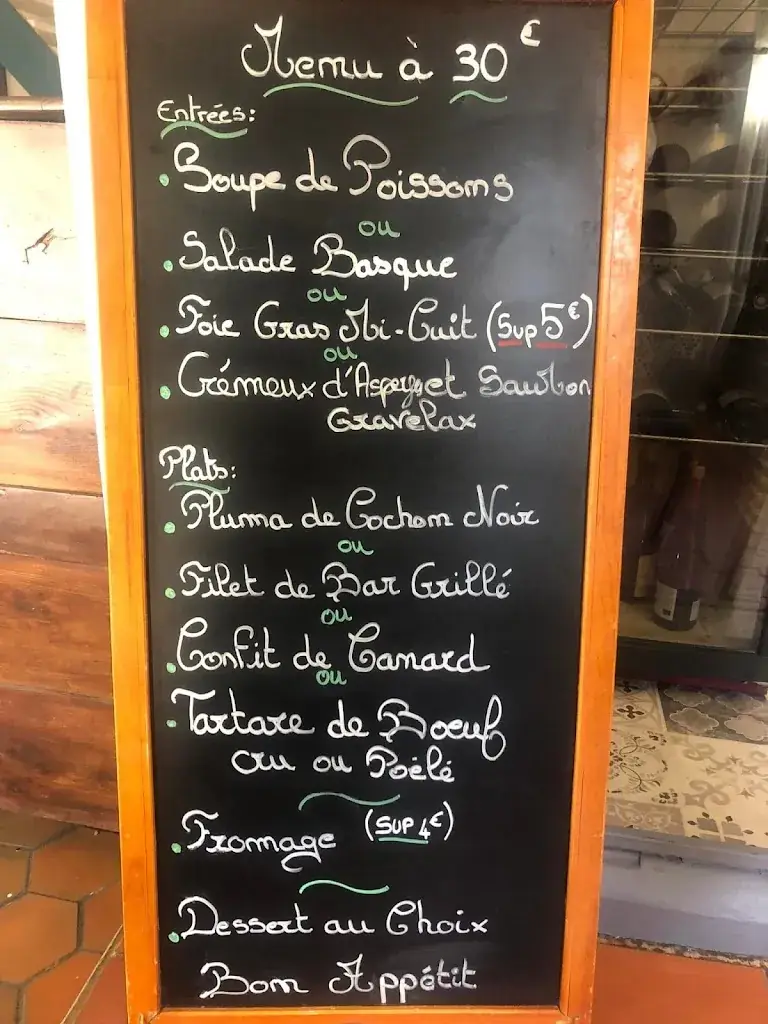 Menu à 30 €
Entrées:
• Soupe de Poissons
ou
• Salade Basque
ou
• Foie Gras Mi-Cuit (Sup 5€)
ou
• Crémeux d'Asperges et Saumon
Gravelax
Plats:
• Pluma de Cochon Noir
ou
• Filet de Bar Grillé
ou
• Confit de Canard
ou
• Tartare de Boeuf
cru ou Poêlé
• Fromage (SUP 4€)
• Dessert au Choix
Bon Appétit